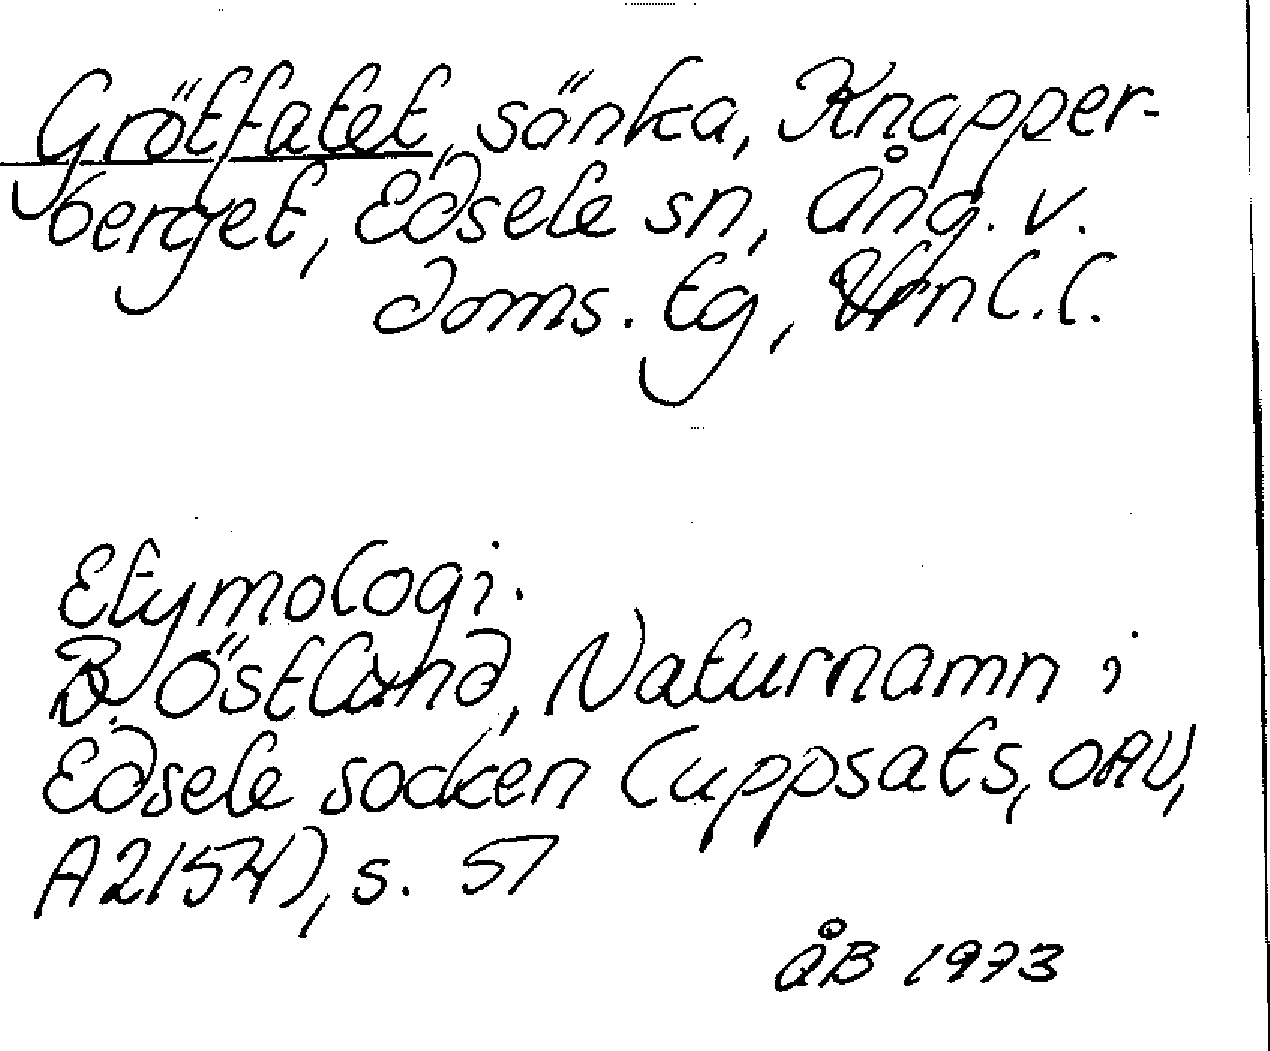 Grötfatet, sänka, Knapper-
berget, Edsele sn, Ång. v.
doms. tg, Vrnl.l.
Etymologi.
B. Östlund, Naturnamn i
Edsele socken (uppsats, OAU,
A2154), s. 57
ÅB 1973